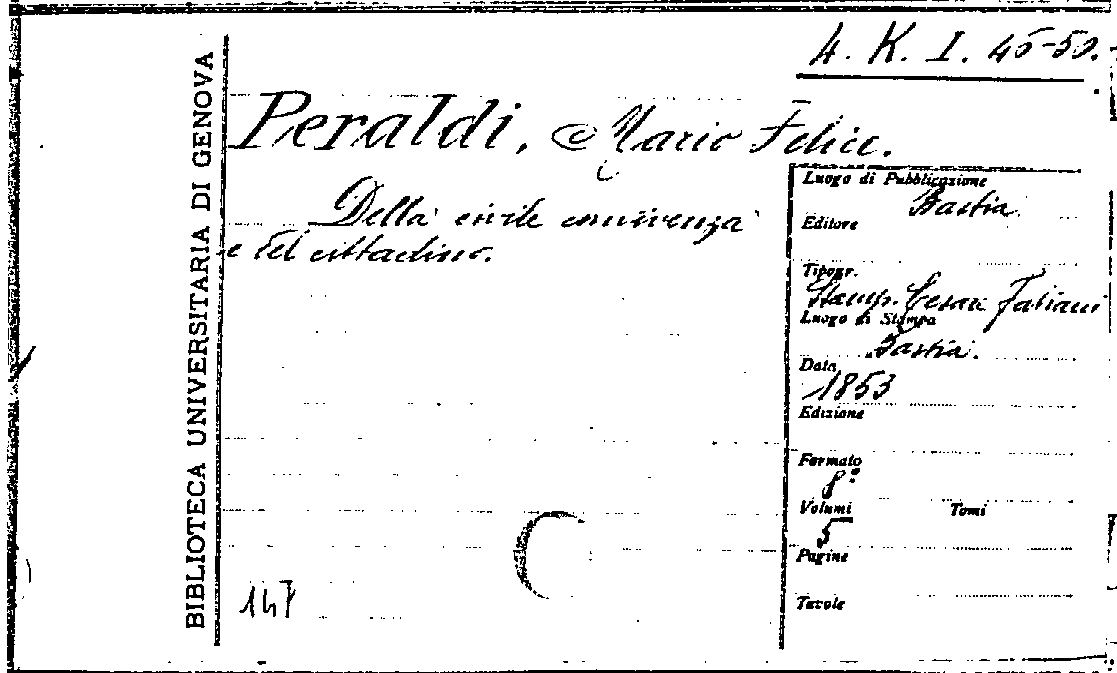 4. K. I. 46-50.
BIBLIOTECA UNIVERSITARIA DI GENOVA
Peraldi, Mario Felice.
Della civile convivenza
e del cittadino.
Luogo di Pubblicazione
Bastia
Editore
Tipogr.
Stamp. Cesare Fabiani
Luogo di Stampa
Bastia.
Data
1853
Edizione
Formato
8°
Volumi Tomi
5
Pagine
Tavole